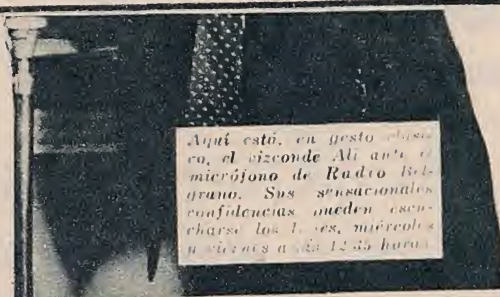 Aquí está, en gesto clási-
co, el vizconde Ali ante el
micrófono de Radio Bel-
grano. Sus sensacionales
confidencias pueden escu-
charse los lunes, miércoles
y viernes a las 12.35 horas.